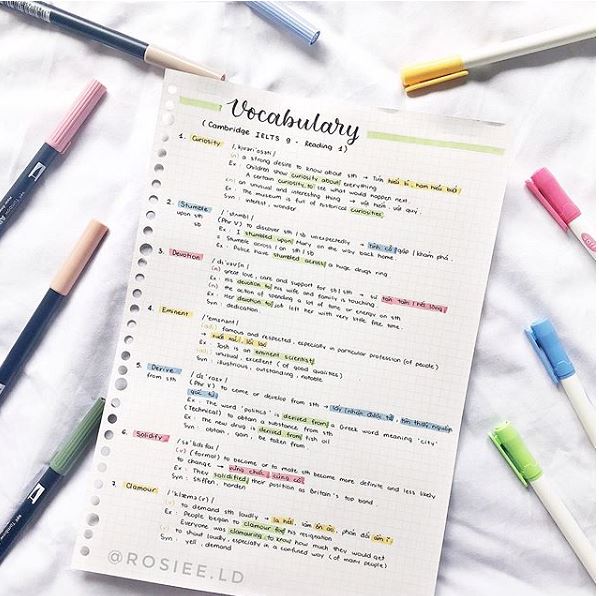 Vocabulary
(Cambridge IELTS 9 - Reading 1)
1. Curiosity /ˌkjʊəriˈɒsəti/
(n) a strong desire to know about sth → Tính hiếu kì, ham hiểu biết
Ex: Children show curiosity about everything
A certain curiosity to see what would happen next.
(n) an unusual and interesting thing → vật hiếm, vật quý.
Ex: The museum is full of historical curiosities
Syn: interest, wonder
2. Stumble /ˈstʌmbl/
upon sth (Phr V) to discover sth / sb unexpectedly → tình cờ gặp / khám phá.
sb Ex: I stumbled upon Mary on the way back home
= Stumble across / on sth / sb
Ex: Police have stumbled across a huge drugs ring
3. Devotion /dɪˈvəʊʃn/
(n) great love, care and support for sb / sth → sự tận tâm / hết lòng
Ex: His devotion to his wife and family is touching.
(n) the action of spending a lot of time or energy on sth
Ex: Her devotion to job left her with very little free time.
Syn: dedication.
4. Eminent /ˈemɪnənt/
(adj) famous and respected, especially in particular profession (of people)
→ xuất sắc, lỗi lạc
Ex: Josh is an eminent scientist
(adj) unusual, excellent (of good qualities)
Syn: illustrious, outstanding, notable
5. Derive /dɪˈraɪv/
from sth (Phr V) to come or develop from sth → bắt nguồn từ
Ex: The word 'politics' is derived from a Greek word meaning 'city'
(Technical) to obtain a substance from sth
Ex: The new drug is derived from fish oil
Syn: obtain, gain, be taken from
6. Solidify /səˈlɪdɪfaɪ/
(v) (formal) to become or to make sth become more definite and less likely
to change → vững chắc, củng cố
Ex: They solidified their position as Britain's top band
Syn: Stiffen, harden
7. Clamour /ˈklæmə(r)/
(v) to demand sth loudly → la hét, làm ồn ào, phản đối ầm ĩ
Ex: People began to clamour for his resignation
Everyone was clamouring to know how much they would get
(v) to shout loudly, especially in a confused way (of many people)
Syn: yell, demand
@ROSIEE.LD